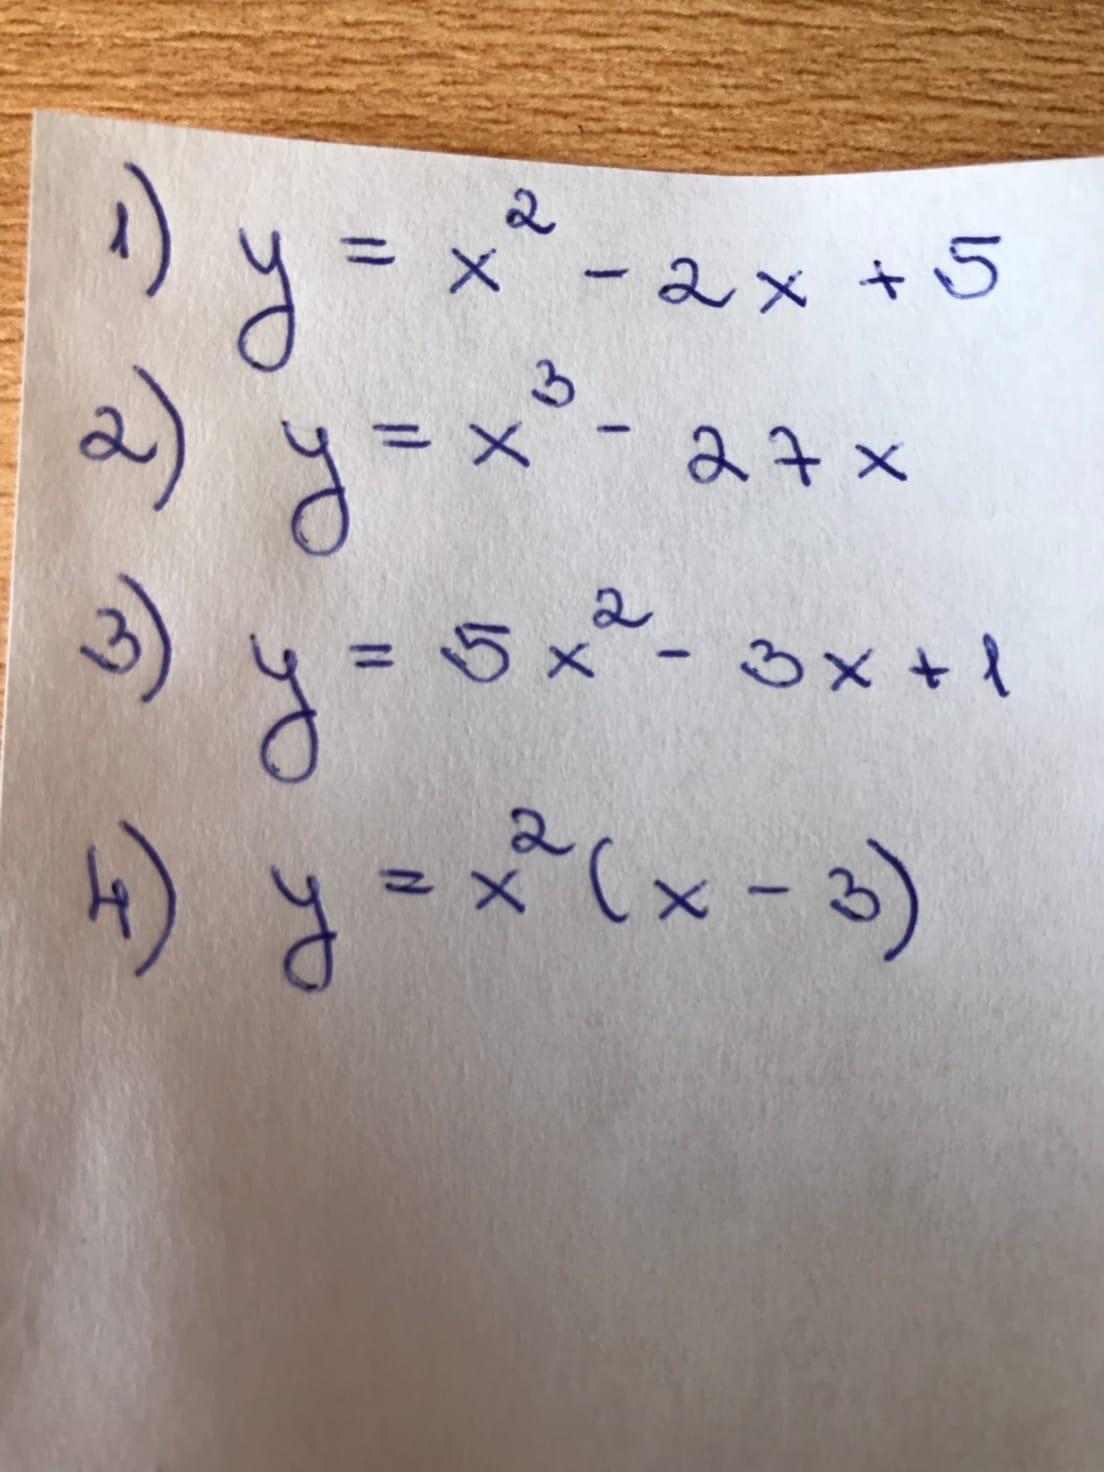 1) y = x² - 2x + 5
2) y = x³ - 27x
3) y = 5x² - 3x + 1
4) y = x²(x - 3)